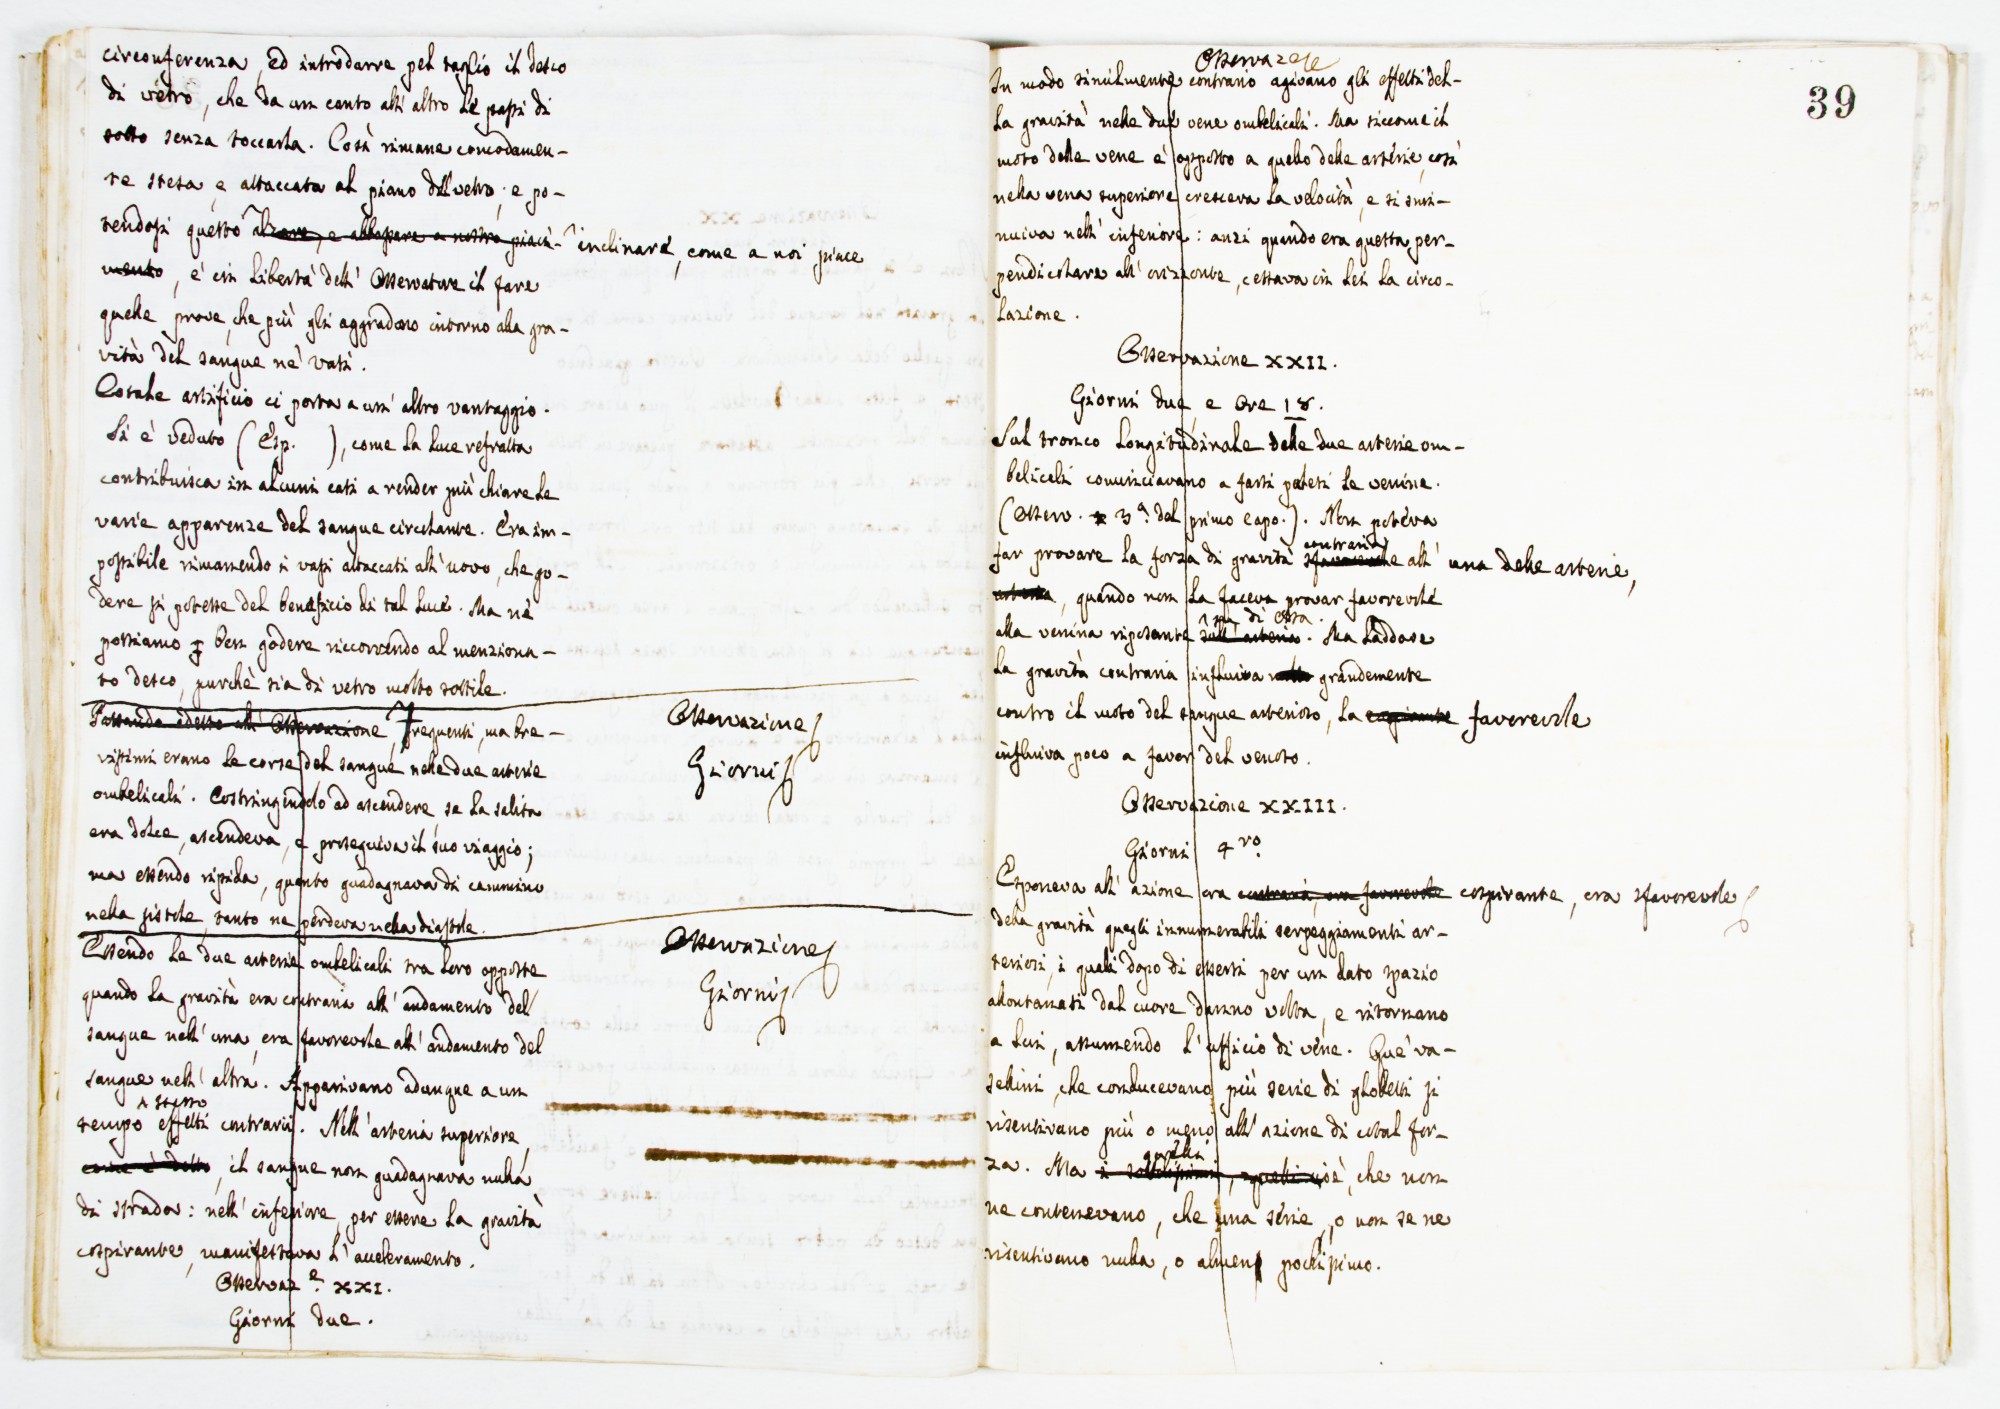 circonferenza, ed introdurre pel taglio il desco
di vetro, che da un canto all' altro le passi di
sotto senza toccarla. Così rimane comodamen-
te stesa, e attaccata al piano del vetro; e po-
tendosi questo alzare, e abbassare a nostro piaci- inclinare, come a noi piace
mento, è in libertà dell' Osservatore il fare
quelle prove, che più gli aggradano intorno alla gra-
vità del sangue ne' vasi.
Cotale artificio ci porta a un' altro vantaggio.
Si è veduto (Esp. ), come la luce refratta
contribuisca in alcuni casi a render più chiare le
varie apparenze del sangue circolante. Era im-
possibile rimanendo i vasi attaccati all' uovo, che go-
dere si potesse del beneficio di tal luce. Ma ne
possiamo ben godere ricorrendo al menziona-
to desco, purchè sia di vetro molto sottile.
Passando adesso all' Osservazione, Frequenti, ma bre-
vissimi erano le corse del sangue nelle due arterie
ombelicali. Costringendolo ad ascendere, se la salita
era dolce, ascendeva, e proseguiva il suo viaggio;
ma essendo ripida, quanto guadagnava di cammino
nella sistole, tanto ne perdeva nella diastole.
Osservazione
Giorni
Essendo le due arterie ombelicali tra loro opposte,
quando la gravità era contraria all' andamento del
sangue nell' una, era favorevole all' andamento del
sangue nell' altra. Apparivano adunque a un
stesso
tempo effetti contrarii. Nell' arteria superiore,
come è detto, il sangue non guadagnava nulla
di strada: nell' inferiore, per essere la gravità
cospirante, manifestava l' acceleramento.
Osservazione
Giorni
Osservaz.e XXI.
Giorni due.
39
Osservaz
In modo similmente contrario agivano gli effetti del-
la gravità nelle due vene ombelicali. Ma siccome il
moto delle vene è opposto a quello delle arterie, così
nella vena superiore cresceva la velocità, e si smi-
nuiva nell' inferiore: anzi quando era questa per-
pendicolare all' orizzonte, cessava in lei la circo-
lazione.
Osservazione XXII.
Giorni due, e Ore 18.
Sul tronco longitudinale delle due arterie om-
belicali cominciavano a farsi palesi le venine.
(Osserv. 3a. del primo capo.). Non poteva
contraria
far provare la forza di gravità sfavorevole all' una delle arterie,
arteria, quando non la faceva provar favorevole
su di essa.
alla venina riposante sull' arteria. Ma laddove
la gravità contraria influiva molto grandemente
contro il moto del sangue arterioso, la cospirante favorevole
influiva poco a favor del venoso.
Osservazione XXIII.
Giorni 4ro.
Esponeva all' azione ora contraria, ora favorevole cospirante, ora sfavorevole
della gravità quegli innumerabili serpeggiamenti ar-
teriosi, i quali dopo di essersi per un dato spazio
allontanati dal cuore danno volta, e ritornano
a lui, assumendo l' ufficio di vene. Que' va-
sellini, che conducevano più serie di globetti si
risentivano più o meno all' azione di cotal for-
quelli
za. Ma i sottilissimi, quelli cioè, che non
ne contenevano, che una serie, o non se ne
risentivano nulla, o almeno pochissimo.